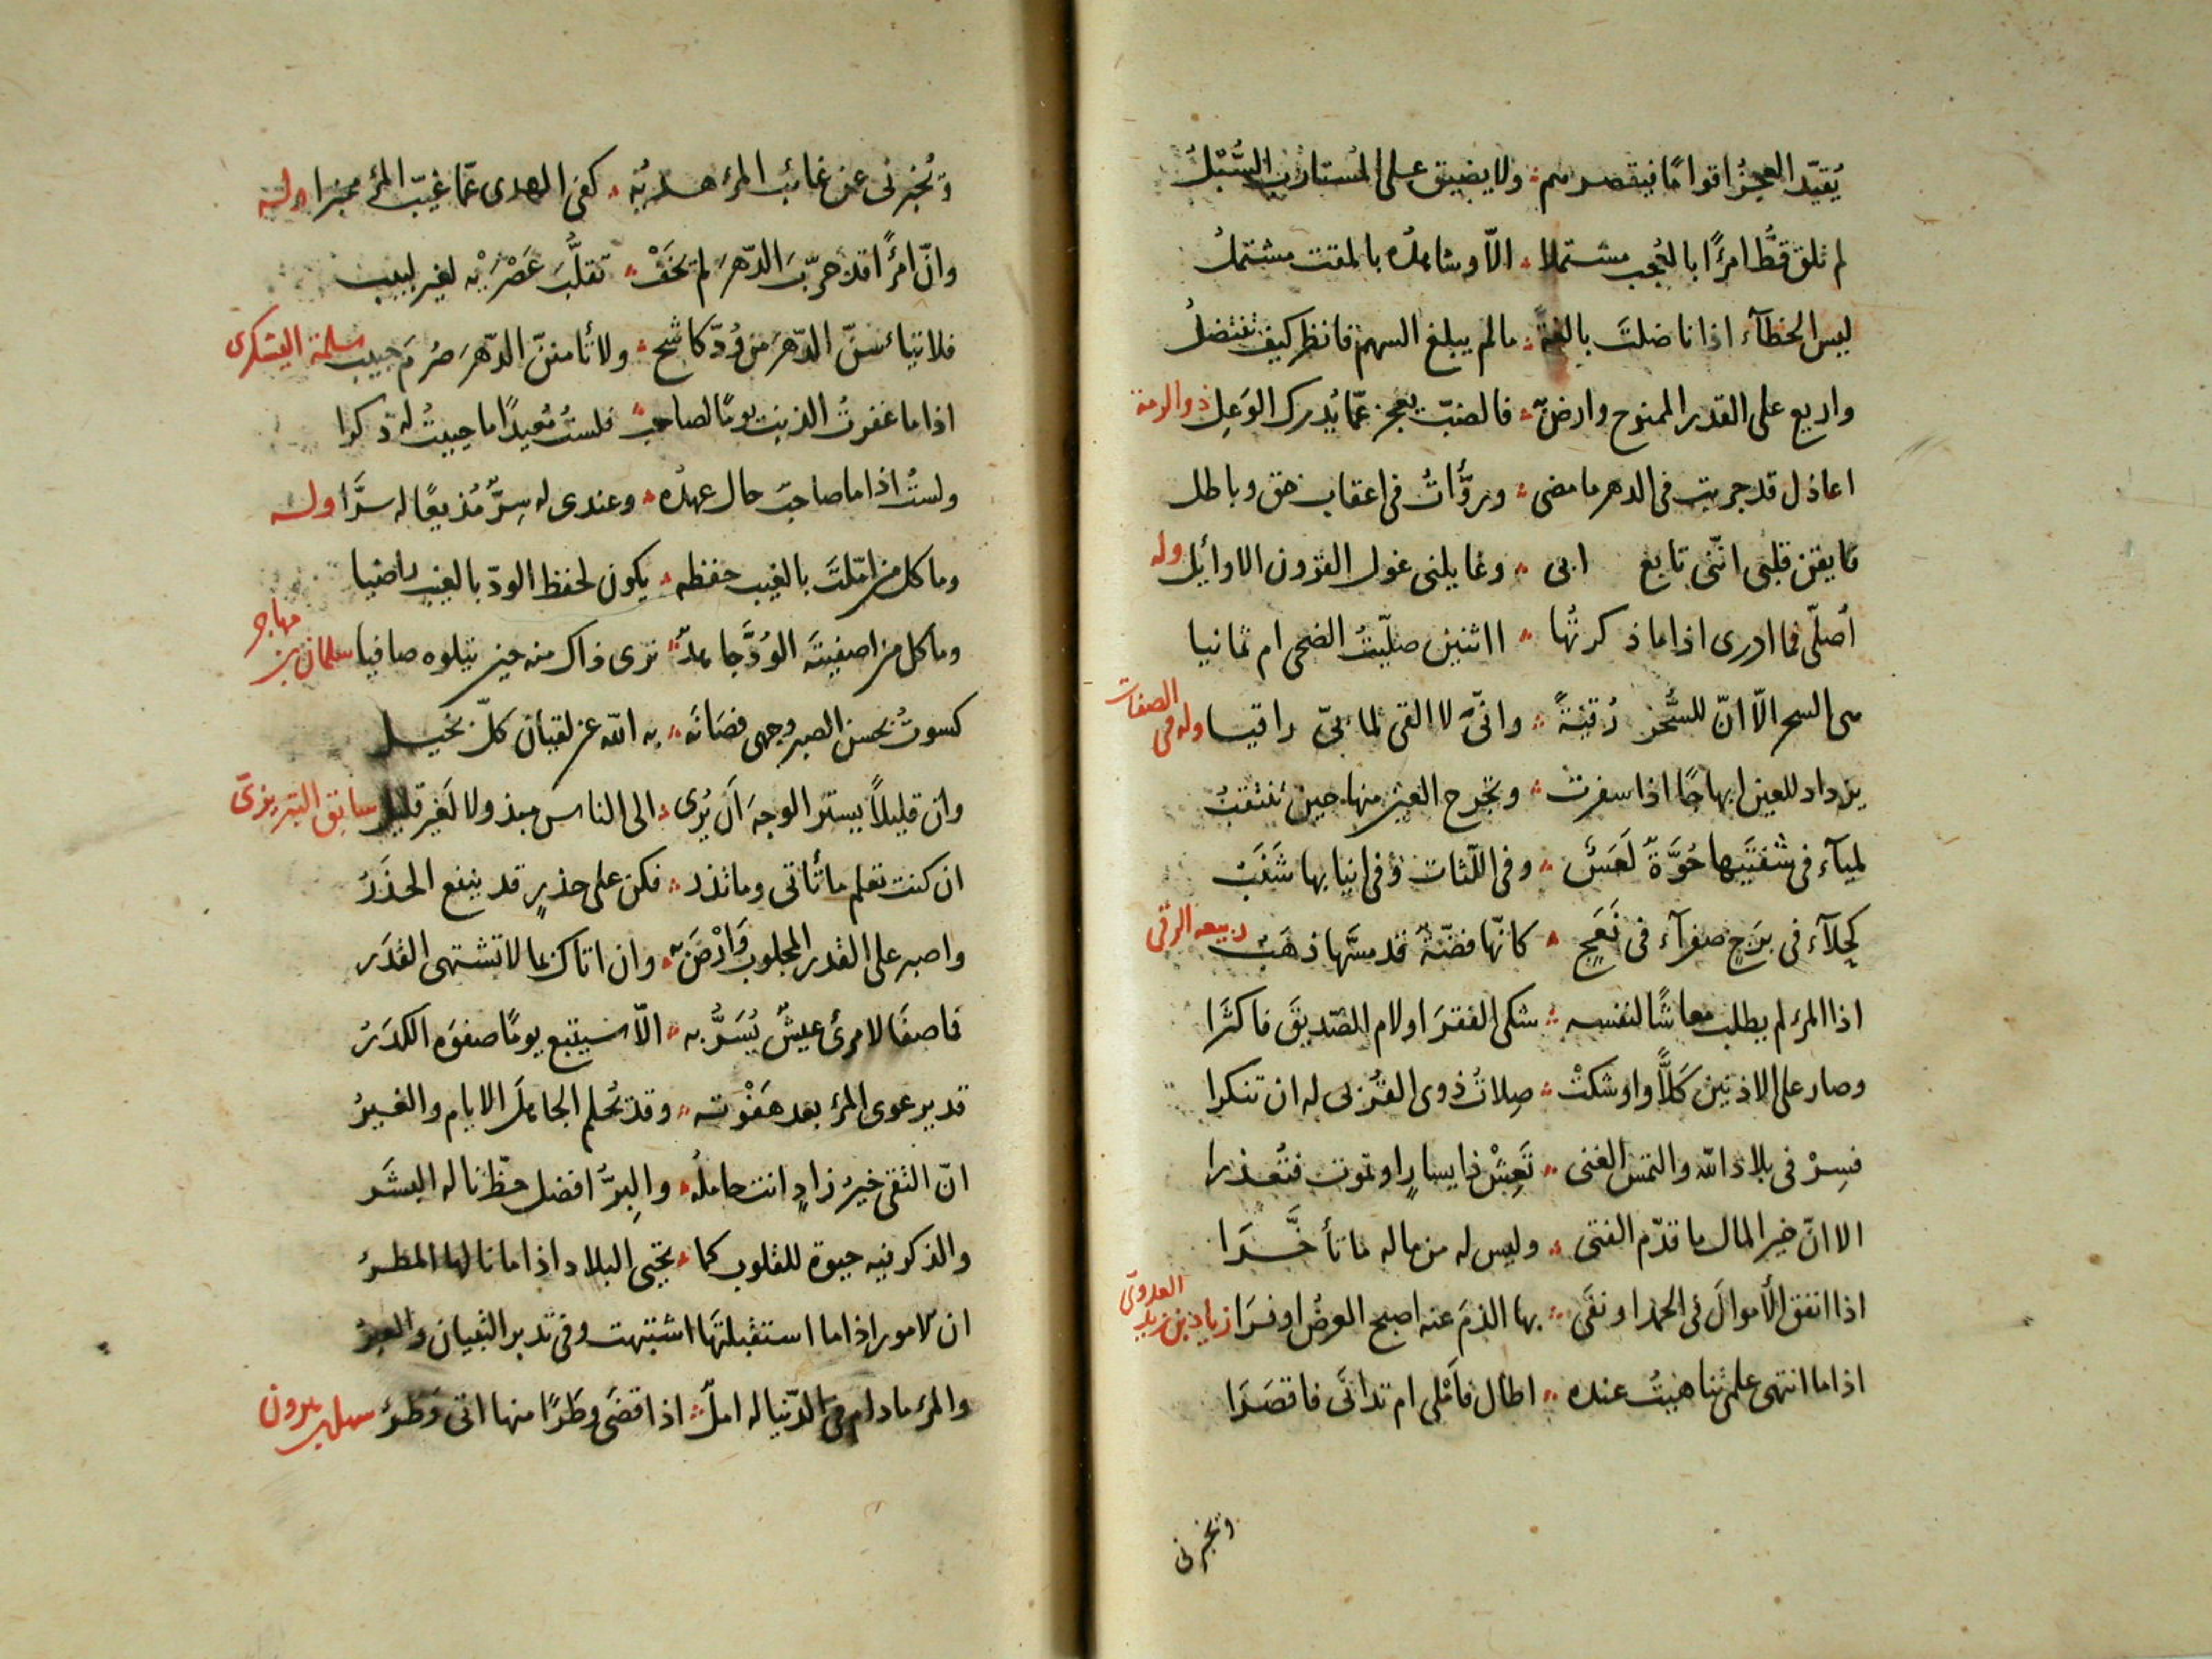 يُقيّد العجزُ اقوامًا فيقصرهم ولا يضيق على المستادب السُّبُلُ
لم تلق قطُّ امرًأ بالعُجب مشتملا الّا وشامله بالمقت مشتملُ
ليس الخطآء اذا ناضلتَ بالغةً ما لم يبلغ السهم فانظر كيف تنتضلُ
واربع على القدر الممنوح وارض به فالضبّ يعجز عمّا يُدرك الوَعِل ذو الرمة
اعاذل قد جربت في الدهر ما مضى وروَّأتُ في اعقاب حق وباطل
فايقن قلبي انّني تابع ابي وغايلني غول القرون الاوائل وله
اُصلّي فما ادري اذا ما ذكرتُها ااثنين صلّيتُ الضحى ام ثمانيا
هي السحر الّا انّ للسُّحر رُقيةً وانّي لا القى لما بيّ راقيا وله في الصفات
يزداد للعين ابهاجًا اذا سفرت وتحرج العين منها حين تنتقبُ
لميآء في شفتَيها حُوَّةٌ لَعَسٌ وفي اللّثات وفي انيابها شَنَبُ
كحلآء في بَرَجٍ صفرآء في نَعَجٍ كانّها فضّةٌ قد مسَّها ذهَبُ ربيعه الرقي
اذا المرء لم يطلب معاشًا لنفسه شكى الفقرَ اولام الصّديقَ فاكثَرا
وصار على الادنين كَلًّا واوشكتْ صِلاتُ ذوى القُربى له ان تنكرا
فسِرْ في بلاد الله والتمس الغنى تَعِشْ ذا يسارٍ او تموت فتُعذرا
الا انّ خير المال ما قدّم الفتى وليس له من ماله ما تأخَّرَا
اذا انفق الأموالَ في الحمد او نفَى بها الذمَ عنه اصبح العرضُ اوفرَا زياد بن زيد العدويّ
اذا ما انتهى علمى تناهيتُ عنده اطال فاَمْلى ام تدانَى فاقصَرَا
وتخبرنى
وتُخبرنى عن غائب المرء هديُه كفى الهدى عمّا غيّب المرء مخبرا وله
وانّ امرًأ قد جرّبَ الدّهرَ لم يخَفْ تقلُّبَ عَصْرَيْه لغير لبيب
فلا تيأسنّ الدّهرَ من وُدّ كاشح ولا تأمننّ الدّهرَ صُرمَ حبيب سلمة اليشكرى
اذا ما غفرتُ الذنبَ يومًا لصاحبٍ فلستُ مُعيدًا ما حييتُ له ذكرا
ولستُ اذا ما صاحبٌ حال عهدُه وعندى له سِرٌّ مُذيعًا له سرَّا وله
وما كل من امّلتَ بالغيب حفظه يكون لحفظ الودّ بالغيب راضيا
وما كل من اصفيتَه الوُدَّ جاهدًا ترى ذاك منه حين تبلوه صافيا سلمان بن مهاجر
كسوتُ بحسن الصبر وجهى فصَانَه به الله عن لقيان كلّ بخيل
وان قليلًا يستر الوجهَ اَن يُرى الى الناس مبذولا لَغير قليل سابق التبريزىّ
ان كنت تعلم ما تأتى وما تذر فكن على حذرٍ قد ينفع الحذَرُ
واصبر على القدر المجلوب وَارْضَ به وان اتاك بما لا تشتهى القدَر
فما صفَا لامرئ عيشٌ يُسَرُّ به الّا سيتبع يومًا صفوَه الكدَرُ
قد يرعوى المرء بعد هَفْوته وقد تُحلم الجاهلَ الايام والغيرُ
انّ التقى خيرُ زادٍ انت حاملُه والبِرُّ افضل حظّ ناله البشَر
والذكر فيه حيوة للقلوب كما تحيى البلاد اذا ما نالها المطرُ
ان الامور اذا ما استقبلتَها اشتبهت وفى تدبر التبيان والعبرُ
والمرء ما دام فى الدّنيا له املٌ اذا قضَى وطَرًا منها اتى وَطَرُ سهل بن هرون